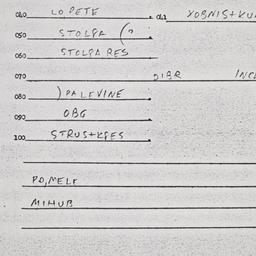 040 LOPETE 041 YOBNIS+KU
050 STOLPA (?
060 STOLPA RES
070 DIBR INCL
080 ) PALEVINE
090 OBG
100 STRUS+KPES
PO, MELE
MIHUB